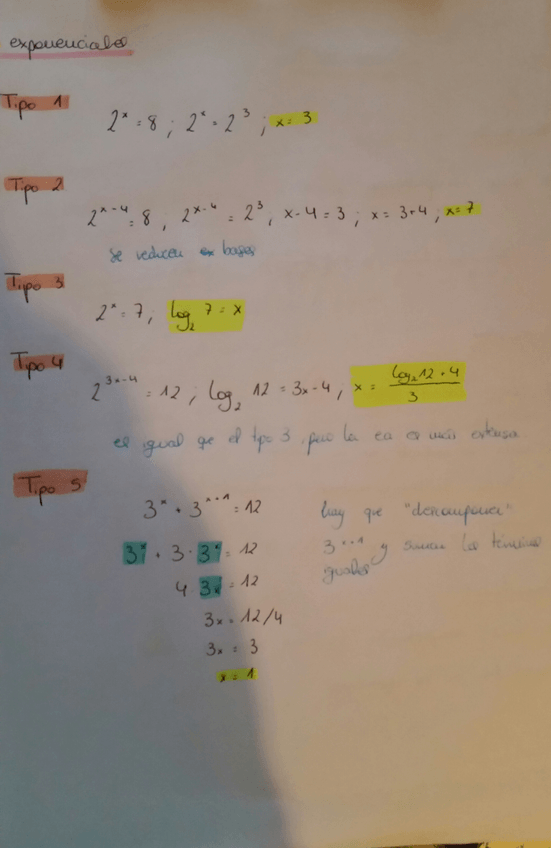 exponenciales
Tipo 1
2^x = 8 ; 2^x = 2^3 ; x = 3
Tipo 2
2^{x-4} = 8, 2^{x-4} = 2^3, x-4 = 3 ; x = 3+4 ; x = 7
se reducen bases
Tipo 3
2^x = 7 ; log_2 7 = x
Tipo 4
2^{3x-4} = 12 ; log_2 12 = 3x-4 ; x = \frac{log_2 12 + 4}{3}
es igual qe el tipo 3, pero la ec es más extensa
Tipo 5
3^x + 3^{x+1} = 12 hay que "descomponer"
3^x + 3 · 3^x = 12 3^{x+1} y suman los términos
4 3^x = 12 iguales
3x = 12/4
3x = 3
x = 1